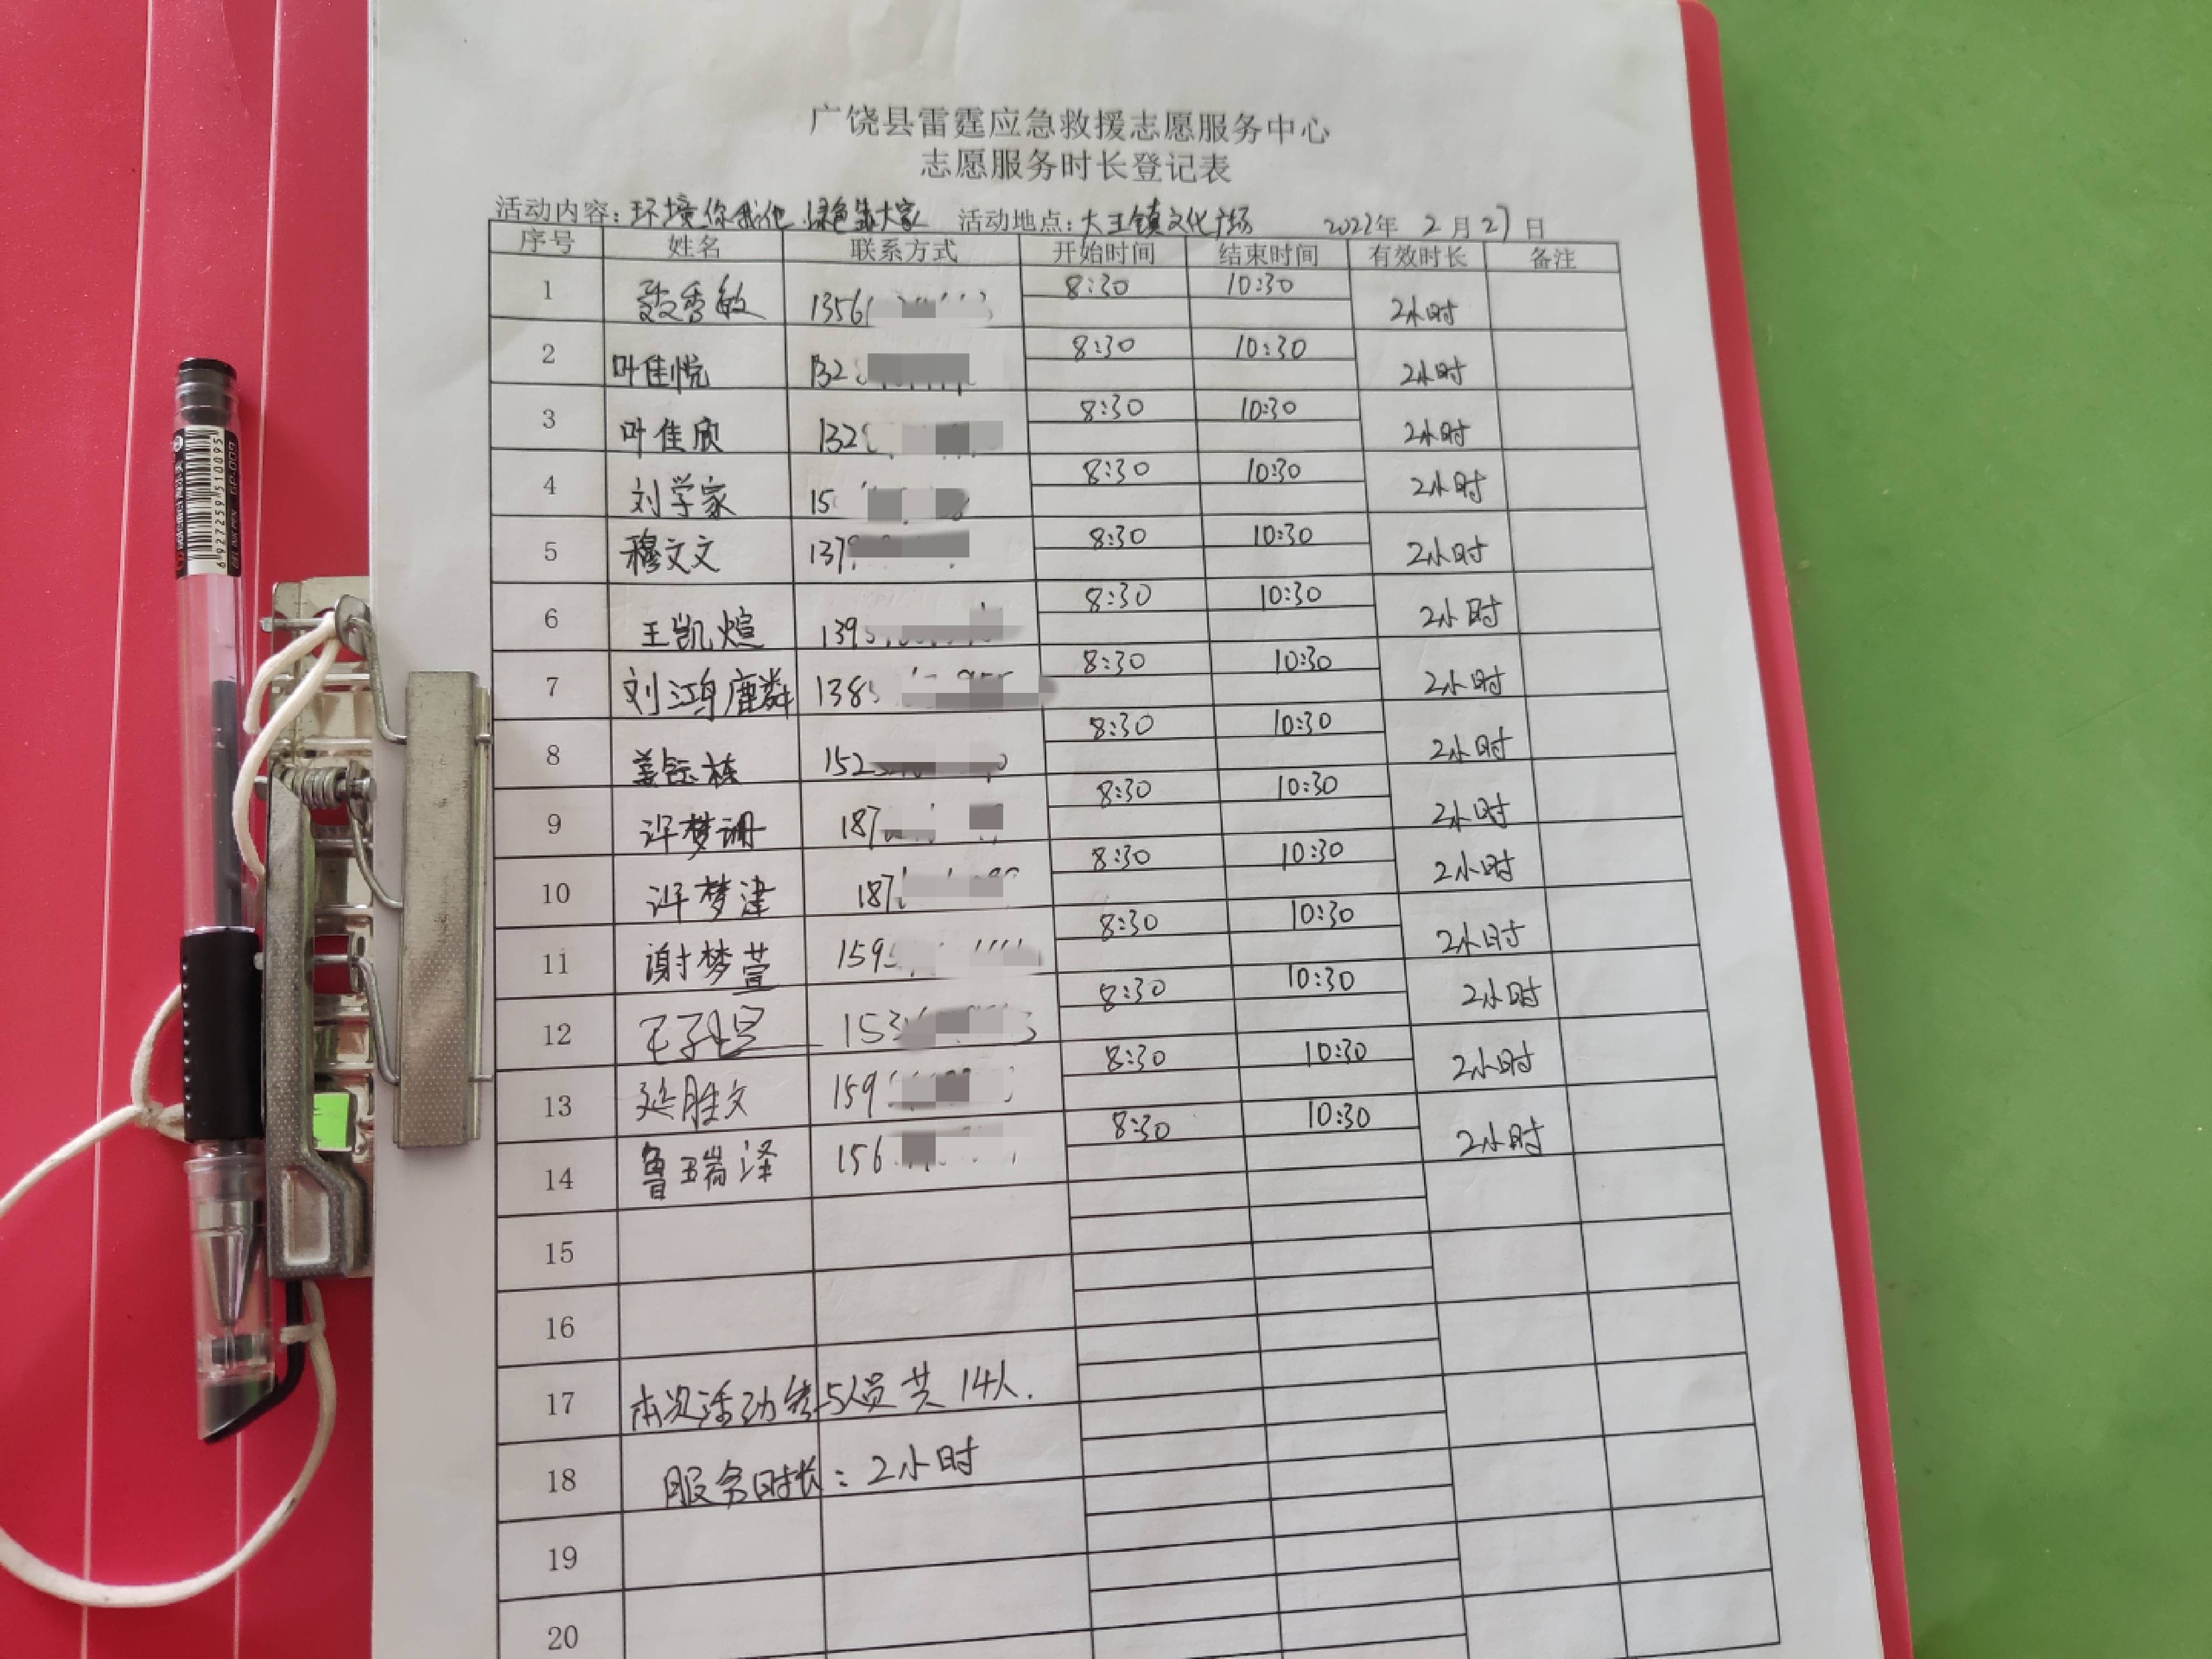 广饶县雷霆应急救援志愿服务中心
志愿服务时长登记表
活动内容：环境你我他 绿色靠大家 活动地点：大王镇文化广场 2022年 2月27日
序号 姓名 联系方式 开始时间 结束时间 有效时长 备注
1 秀敏 1356 8:30 10:30 2小时
2 叶佳悦 132 8:30 10:30 2小时
3 叶佳欣 132 8:30 10:30 2小时
4 刘学家 15 8:30 10:30 2小时
5 穆文文 137 8:30 10:30 2小时
6 王凯煊 139 8:30 10:30 2小时
7 刘鸿麟 138 8:30 10:30 2小时
8 姜钰栋 152 8:30 10:30 2小时
9 许梦珊 187 8:30 10:30 2小时
10 许梦津 187 8:30 10:30 2小时
11 谢梦萱 159 8:30 10:30 2小时
12 153 8:30 10:30 2小时
13 延胜文 159 8:30 10:30 2小时
14 鲁瑞泽 156 8:30 10:30 2小时
15
16
17 本次活动参与人员共14人.
18 服务时长：2小时
19
20
6927259510095
GEL INK PEN GP-009